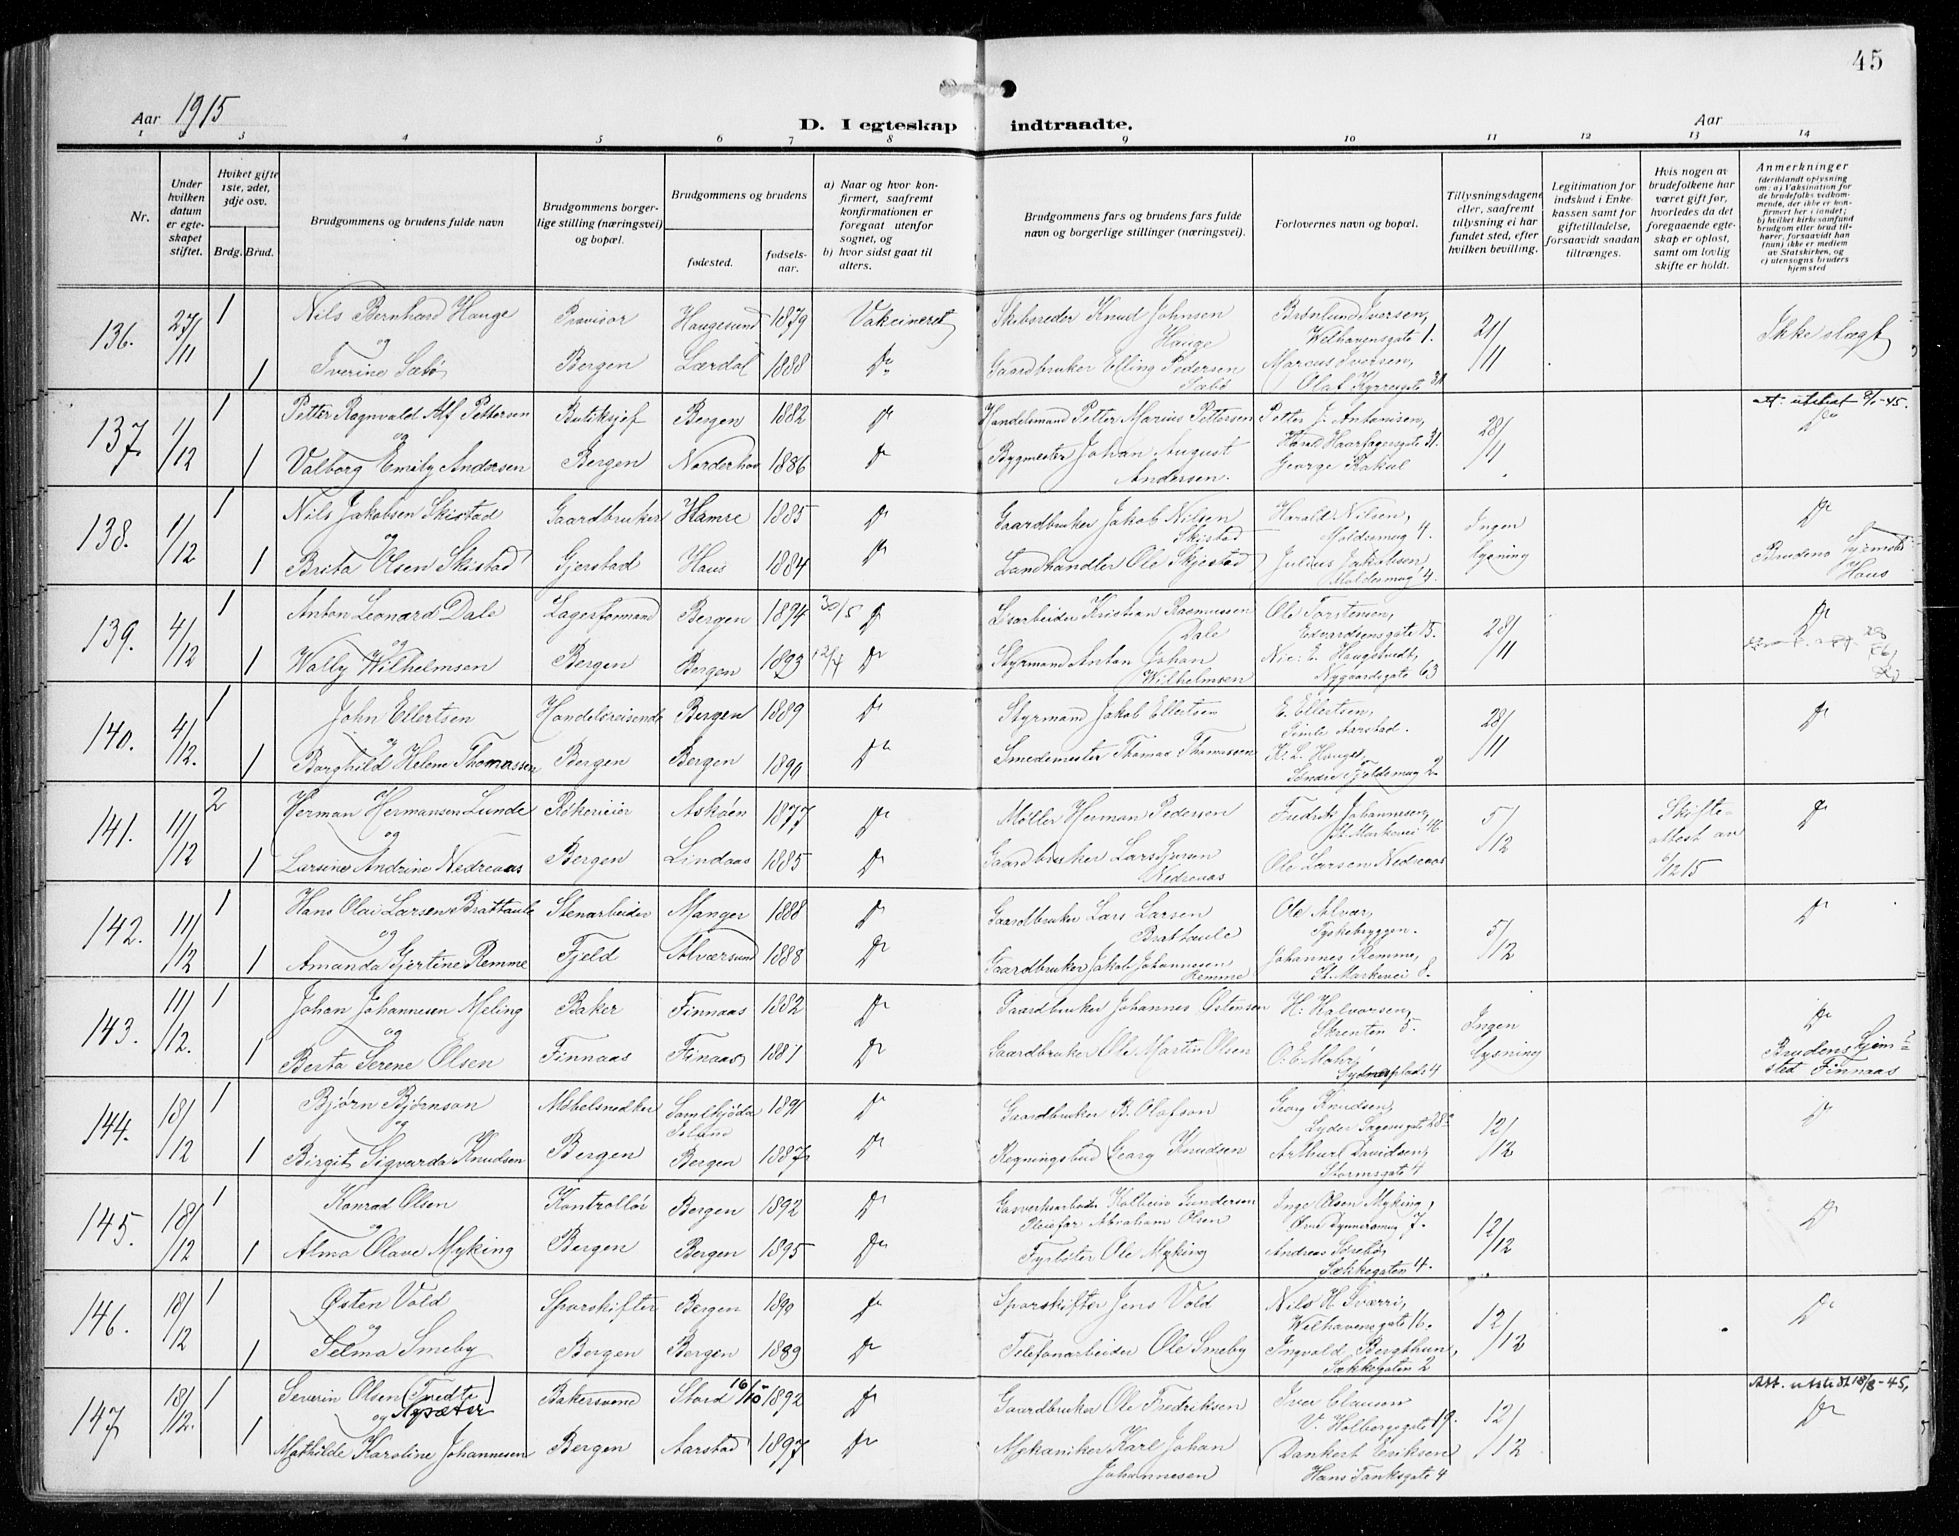 45
Aar 1915
D. I egteskap indtraadte.
Aar
1 3 4 5 6 7 8 9 10 11 12 13 14
Nr.
Under hvilken datum er egteskapet stiftet.
Hviket gifte 1ste, 2det, 3dje osv.
Brdg. Brud.
Brudgommens og brudens fulde navn
Brudgommens borgerlige stilling (næringsvei) og bopæl.
Brudgommens og brudens
fødested.
fødselsaar.
a) Naar og hvor konfirmert, saafremt konfirmationen er foregaat utenfor sognet, og
b) hvor sidst gaat til alters.
Brudgommens fars og brudens fars fulde navn og borgerlige stillinger (næringsvei).
Forlovernes navn og bopæl.
Tillysningsdagene eller, saafremt tillysning ei har fundet sted, efter hvilken bevilling.
Legitimation for indskud i Enkekassen samt for giftetilladelse, forsaavidt saadan tiltrænges.
Hvis nogen av brudefolkene har været gift før, hvorledes da det foregaaende egteskap er opløst, samt om lovlig skifte er holdt.
Anmerkninger (deriblandt oplysning om: a) Vaksination for de brudefolks vedkommende, der ikke er konfirmert her i landet; b) hvilket kirkesamfund brudgom eller brud tilhører, forsaavidt han (hun) ikke er medlem av Statskirken, og c) utensogns bruders hjemsted
136. 27/11 1 Nils Bernhard Hauge Provisor Haugesund 1879 Vakcineret Skibsreder Knud Johnsen Hauge Brønlund Iversen, Welhavensgate 1. 21/11 Ikke slegt
og
1 Iverine Sæbø Bergen Lærdal 1888 Do Gaardbruker Elling Pedersen Sæbø Marcus Iversen, Olaf Kyrresgate 31
137. 1/12 1 Petter Ragnvald Alf Pettersen Butiksjef Bergen 1882 Do Handelsmand Petter Marius Pettersen Petter J. Antonisen, Harald Haarfagersgate 31. 28/11 Att. utstedt 8/1-45. Do
og
1 Valborg Emily Andersen Bergen Norderhov 1886 Do Bygmester Johan August Andersen. George Rakul
138. 1/12 1 Nils Jakobsen Skistad Gaardbruker Hamre 1885 Do Gaardbruker Jakob Nilsen Skistad Harald Nilsen, Moldesmug 4. Ingen lysning Do
og
1 Brita Olsen Skistad Gjerstad Haus 1884 Do Landhandler Ole Skjestad Julius Jakobsen, Moldesmug 4. Brudens hjemsted Haus
139. 4/12 1 Anton Leonard Dale Lagerformand Bergen 1894 30/5 Do Isarbeider Kristian Rasmussen Dale Ole Torstensen, Edvardsensgate 15. 28/11 Do
og
1 Wally Wilhelmsen Bergen Bergen 1893 12/7 Do Styrmand Anton Johan Wilhelmsen Nic. E. Haugstvedt, Nygaardsgate 63
140. 4/12. 1 John Ellertsen Handelsreisende Bergen 1889 Do Styrmand Jakob Ellertsen E. Ellertsen, Aarstad. 28/11 Do
og
1 Borghild Helene Thomassen Bergen Bergen 1890 Do Smedemester Thomas Thomassen K. L. Hauge, Søndre Fjeldsmug 2
141. 11/12 2 Herman Hermansen Lunde Røkerieier Askøen 1877 Do Møller Herman Pedersen Fredrik Johannesen, St. Markevei 46 5/12 Skifteattest av 9/12 15 Do
og
1 Larsine Andrine Nedreaas Bergen Lindaas 1885 Do Gaardbruker Lars Nedreaas Ole Larsen Nedreaas
142. 11/12 1 Hans Olai Larsen Brattaule Stenarbeider Manger 1888 Do Gaardbruker Lars Larsen Brattaule Ole Alvær, Tyskebryggen. 5/12 Do
og
1 Amanda Gjertine Remme Fjeld Alværsund 1888 Do Gaardbruker Jakob Johannesen Remme Johannes Remme, St. Markevei 8.
143. 11/12. 1 Johan Johannesen Meling Baker Finnaas 1882 Do Gaardbruker Johannes Østensen H. Halvorsen, Strenten 5. Ingen lysning Do
og
1 Berta Serene Olsen Finnaas Finaas, 1881 Do Gaardbruker Ole Martin Olsen O. E. Mohr, Sydnesplads 4 Brudens hjemsted Finnaas
144. 18/12 1 Bjørn Bjørnson Møbelsnedker Island 1891 Do Gaardbruker B. Olafson Georg Knudsen, Lyder Sagensgate 28a 12/12 Do
og
1 Birgit Sigvarda Knudsen Bergen Bergen 1887 Do Regningsbud Georg Knudsen Arthur Davidsen, Stormsgate 4
145. 18/12 1 Konrad Olsen Kontrollør Bergen 1892 Do Gasverksarbeider Kolbein Gundersen Pleiefar Abraham Olsen Inge Olsen Myking, Øvre Dynnersmug 7. 12/12 Do
og
1 Alma Olave Myking Bergen Bergen 1895 Do Fyrbøter Ole Myking Andreas Sørebø, Sækkegaten 4.
146. 18/12 1 Østen Vold Sporskifter Bergen 1890 Do Sporskifter Jens Vold Nils H. Sværri, Welhavensgate 16. 12/12 Do
og
1 Selma Smeby Bergen Bergen 1889 Do Telefonarbeider Ole Smeby Ingvald Bergthun, Sækkegaten 2
147. 18/12. 1 Severin Olsen (Tredte) Nysæter Bakersvend Stord 16/10 1892 Do Gaardbruker Ole Fredriksen Iver Clausen V. Holbergsgate 19. 12/12 Att. utstedt 18/8-45. Do
og
1 Mathilde Karoline Johannesen Bergen Aarstad 1897 Do Mekaniker Karl Johan Johannesen Dankert Eriksen Hans Tanksgate 4